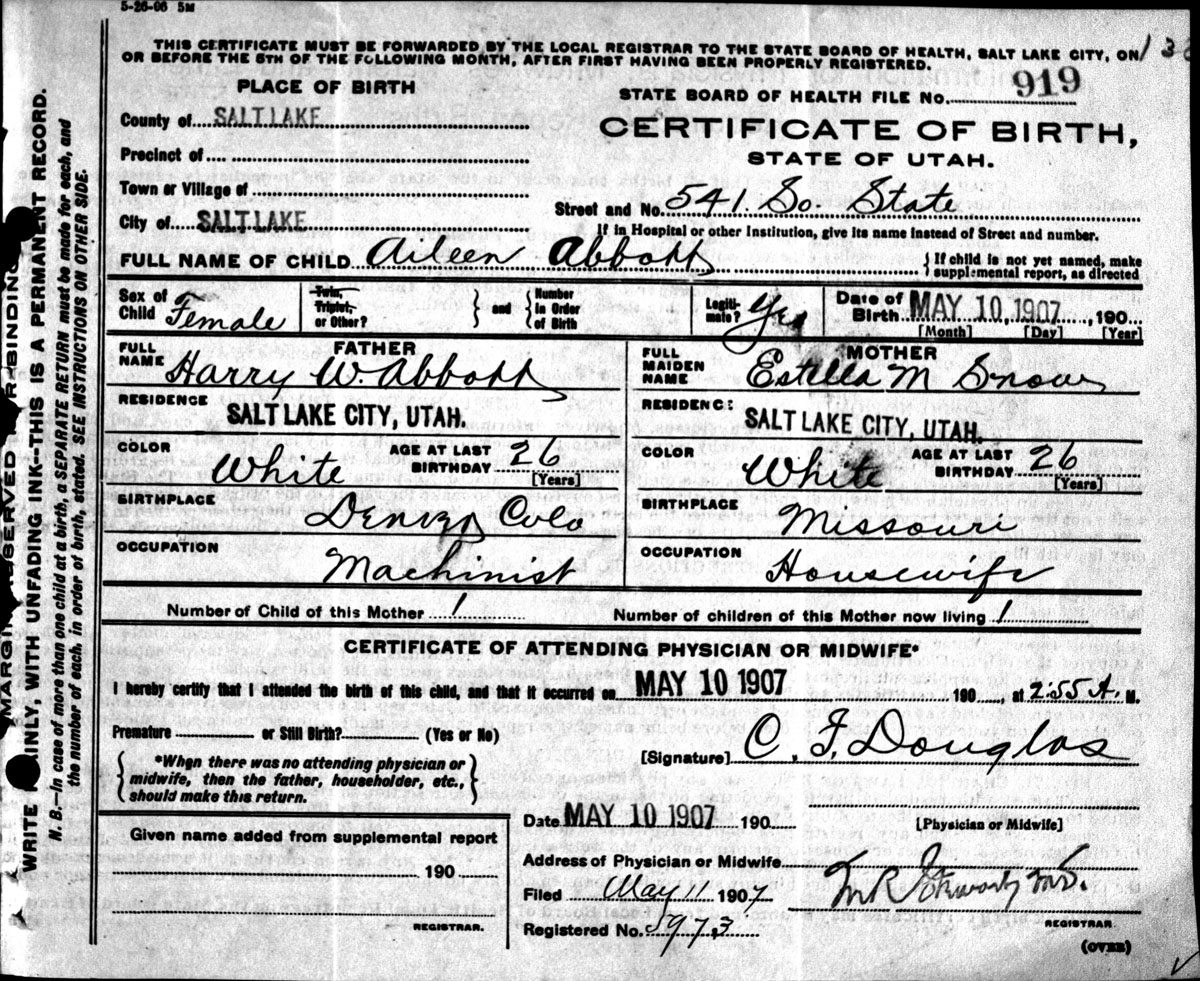 5-26-06 5M
THIS CERTIFICATE MUST BE FORWARDED BY THE LOCAL REGISTRAR TO THE STATE BOARD OF HEALTH, SALT LAKE CITY, ON
OR BEFORE THE 5TH OF THE FOLLOWING MONTH, AFTER FIRST HAVING BEEN PROPERLY REGISTERED.
PLACE OF BIRTH
STATE BOARD OF HEALTH FILE No. 919
County of SALT LAKE
CERTIFICATE OF BIRTH,
STATE OF UTAH.
Precinct of
Town or Village of
Street and No. 541. So. State
City of SALT LAKE
If in Hospital or other Institution, give its name instead of Street and number.
FULL NAME OF CHILD Aileen Abbott
{ If child is not yet named, make
supplemental report, as directed
Sex of Child Female
Twin, Triplet, or Other? } and { Number in Order of Birth
Legiti-mate? Yes
Date of Birth MAY 10, 1907, 190
[Month] [Day] [Year]
FATHER
FULL NAME Harry W. Abbott
RESIDENCE SALT LAKE CITY, UTAH.
COLOR White AGE AT LAST BIRTHDAY 26 [Years]
BIRTHPLACE Denver Colo
OCCUPATION Machinist
MOTHER
FULL MAIDEN NAME Estella M Snow
RESIDENCE: SALT LAKE CITY, UTAH.
COLOR White AGE AT LAST BIRTHDAY 26 [Years]
BIRTHPLACE Missouri
OCCUPATION Housewife
Number of Child of this Mother 1
Number of children of this Mother now living 1
CERTIFICATE OF ATTENDING PHYSICIAN OR MIDWIFE*
I hereby certify that I attended the birth of this child, and that it occurred on MAY 10 1907 190 , at 2:55 A. M.
Premature or Still Birth? (Yes or No)
[Signature] C. F. Douglas
{ *When there was no attending physician or
midwife, then the father, householder, etc.,
should make this return. }
Date MAY 10 1907 190
[Physician or Midwife]
Given name added from supplemental report
190
REGISTRAR.
Address of Physician or Midwife
Filed May 11 1907
M.D.
REGISTRAR
Registered No. 5973
(OVER)
MARGIN RESERVED FOR BINDING
WRITE PLAINLY, WITH UNFADING INK--THIS IS A PERMANENT RECORD.
N. B.--In case of more than one child at a birth, a SEPARATE RETURN must be made for each, and
the number of each, in order of birth, stated. SEE INSTRUCTIONS ON OTHER SIDE.